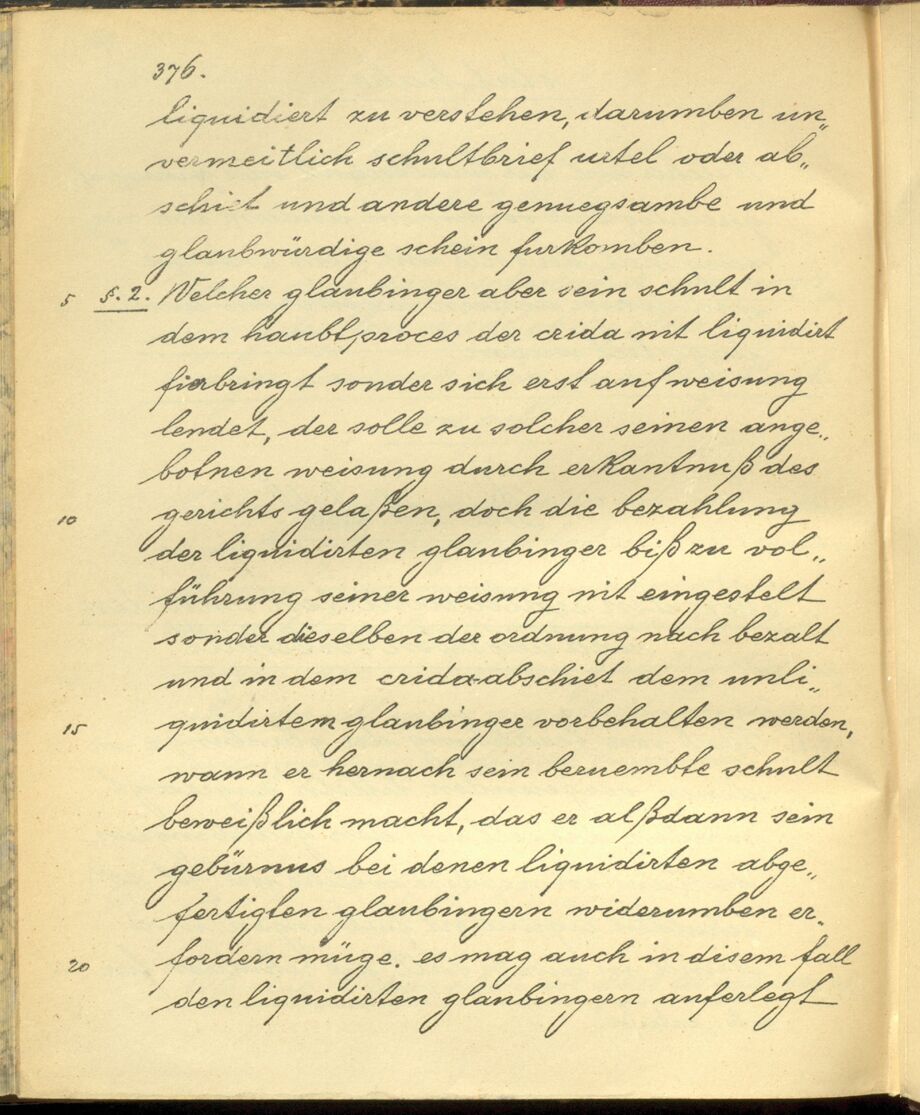 376.
liquidiert zu verstehen, darumben un„
vermeitlich schultbrief urtel oder ab„
schiet und andere genuegsambe und
glaubwürdige schein furkomben.
5 §. 2. Welcher glaubinger aber sein schult in
dem haubtproces der crida nit liquidirt
fierbringt sonder sich erst auf weisung
lendet, der solle zu solcher seinen ange„
botnen weisung durch erkantnuß des
10 gerichts gelaßen, doch die bezahlung
der liquidirten glaubinger biß zu vol„
führung seiner weisung nit eingestelt
sonder dieselben der ordnung nach bezalt
und in dem crida-abschiet dem unli„
15 quidirtem glaubinger vorbehalten werden,
wann er hernach sein beruembte schult
beweißlich macht, das er alßdann sein
gebürnus bei denen liquidirten abge„
fertigten glaubingern widerumben er„
20 fordern müge. es mag auch in disem fall
den liquidirten glaubingern auferlegt